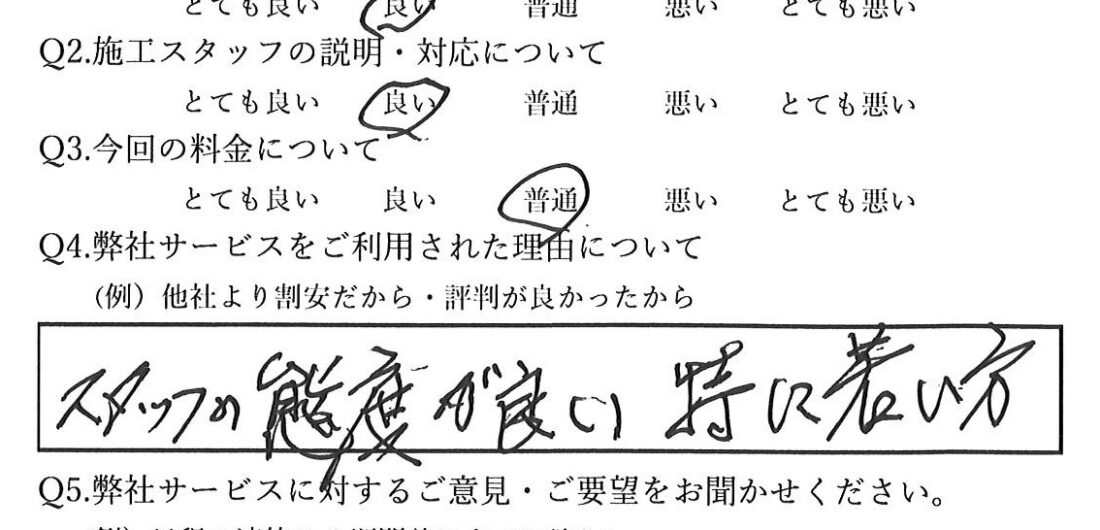 とても良い 良い 普通 悪い とても悪い
Q2.施工スタッフの説明・対応について
とても良い 良い 普通 悪い とても悪い
Q3.今回の料金について
とても良い 良い 普通 悪い とても悪い
Q4.弊社サービスをご利用された理由について
（例）他社より割安だから・評判が良かったから
スタッフの態度が良い 特に若い方
Q5.弊社サービスに対するご意見・ご要望をお聞かせください。